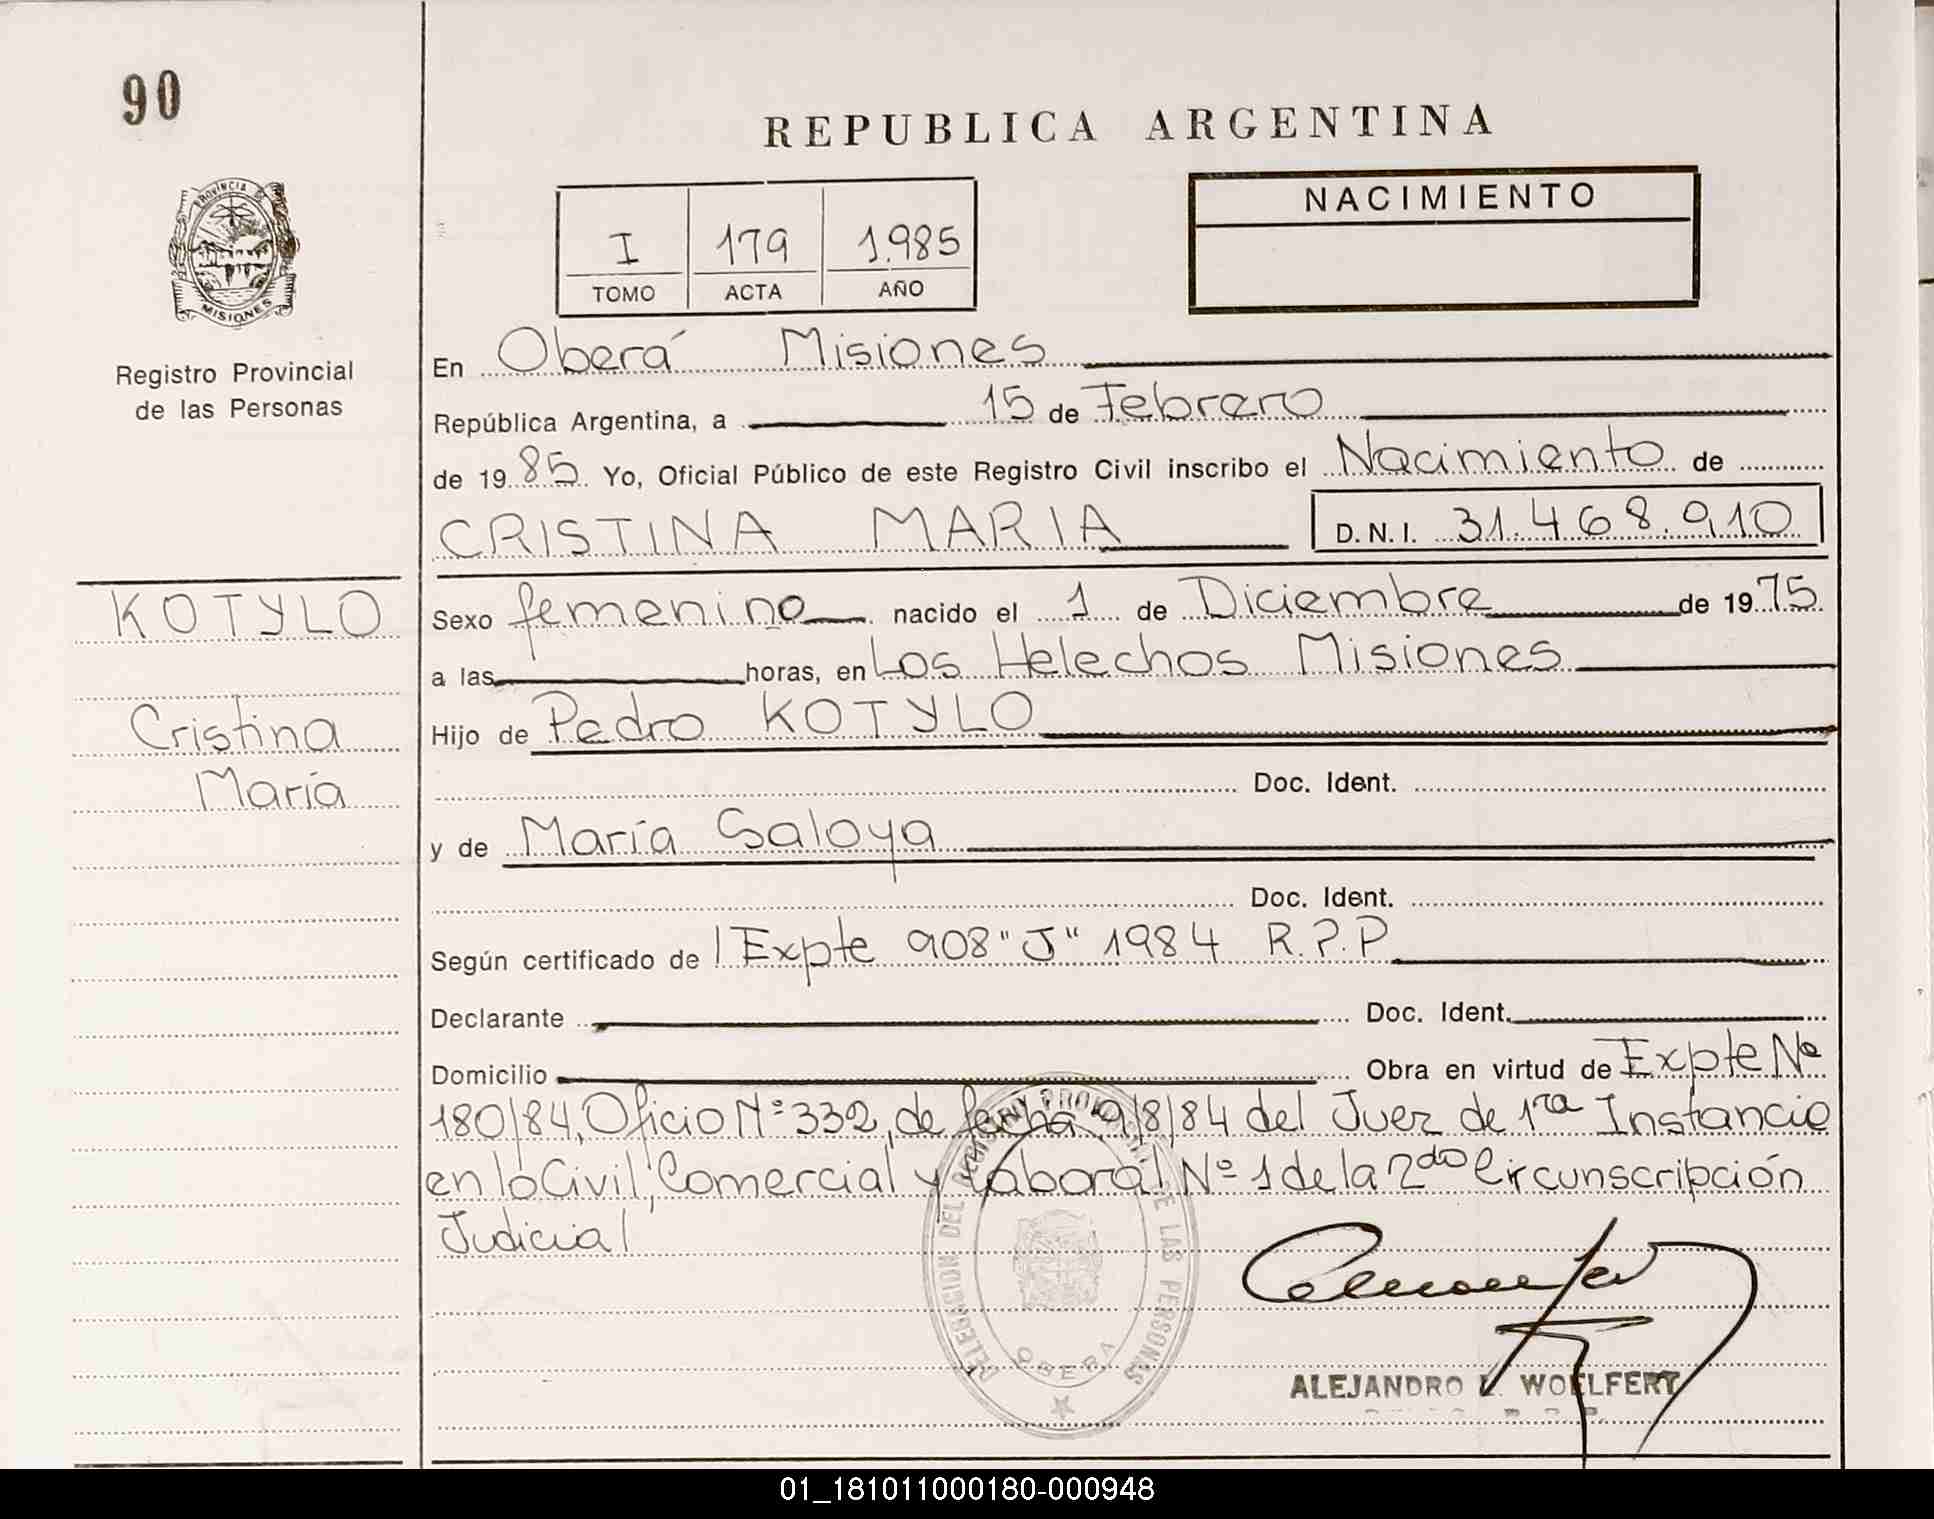 90
REPUBLICA ARGENTINA
PROVINCIA DE
MISIONES
Registro Provincial
de las Personas
I 179 1.985
TOMO ACTA AÑO
NACIMIENTO
En Oberá Misiones
República Argentina, a 15 de Febrero
de 19 85 Yo, Oficial Público de este Registro Civil inscribo el Nacimiento de
CRISTINA MARIA D.N.I. 31.468.910
KOTYLO
Cristina
María
Sexo femenino nacido el 1 de Diciembre de 19 75
a las horas, en Los Helechos Misiones
Hijo de Pedro KOTYLO
Doc. Ident.
y de María Saloya
Doc. Ident.
Según certificado de Expte 908 "J" 1984 R.P.P
Declarante Doc. Ident.
Domicilio Obra en virtud de Expte Nº
180/84, Oficio Nº 332, de fecha 9/8/84 del Juez de 1ra Instancia
en lo Civil, Comercial y Laboral Nº 1 de la 2da Circunscripción
Judicial
DELEGACION DEL REGISTRO PROVINCIAL DE LAS PERSONAS
OBERA
ALEJANDRO WOELFERT
01_181011000180-000948